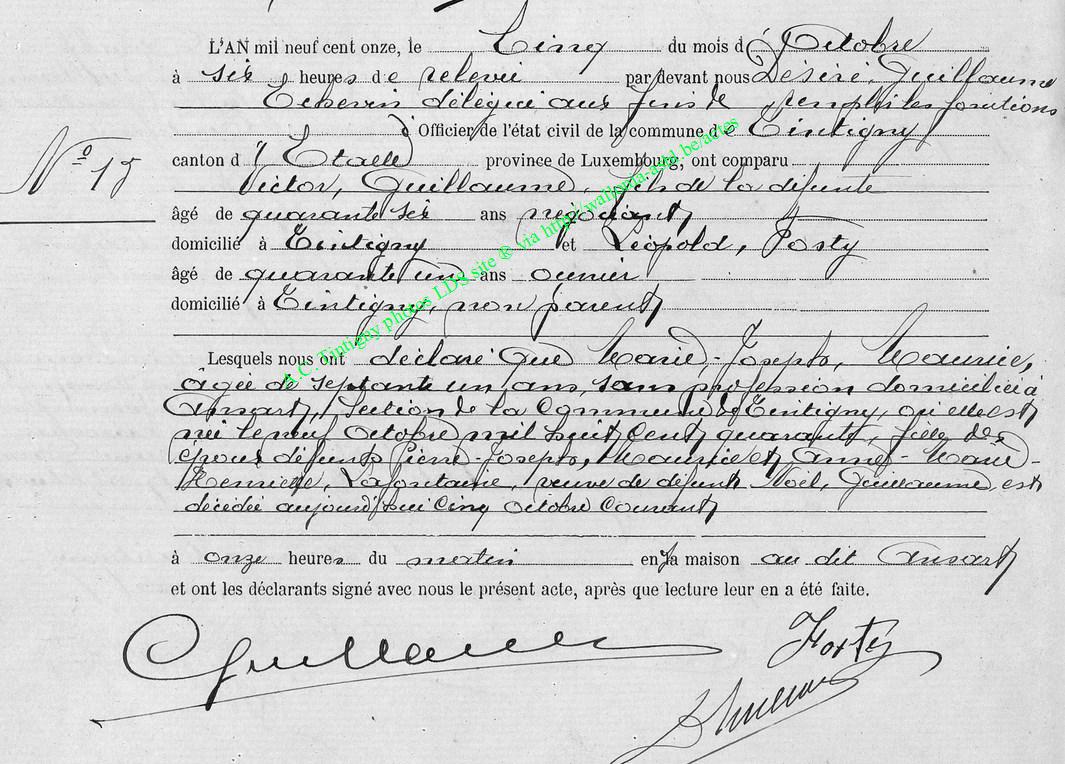 L'AN mil neuf cent onze, le Cinq du mois d'Octobre
à six heures de relevée par devant nous Désiré, Guillaume
Echevin délégué aux fins de remplir les fonctions
d'Officier de l'état civil de la commune de Tintigny
N° 15
canton d'Etalle province de Luxembourg, ont comparu
Victor, Guillaume, fils de la défunte
âgé de quarante six ans négociant
domicilié à Tintigny et Léopold, Forty
âgé de quarante un ans ouvrier
domicilié à Tintigny, non parent
Lesquels nous ont déclaré que Marie-Joseph, Maurice,
âgée de septante un ans, sans profession domiciliée à
Ansart, Section de la Commune de Tintigny, où elle est
née le neuf Octobre mil huit cent quarante, fille des
époux défunts Pierre-Joseph, Maurice et Anne-Marie-
Henriette, Lafontaine, veuve de défunt Noël, Guillaume, est
décédée aujourd'hui cinq octobre courant
à onze heures du matin en la maison au dit Ansart
et ont les déclarants signé avec nous le présent acte, après que lecture leur en a été faite.
Guillaume
Forty
A.C. Tintigny photos LDS site ® via http://wallonia-asbl.be/actes